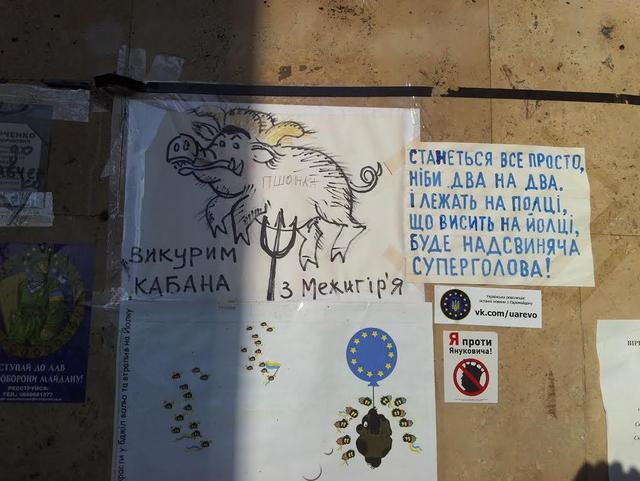 ПШОНКА
ВИКУРИМ
КАБАНА
З МЕЖИГІР'Я
СТАНЕТЬСЯ ВСЕ ПРОСТО,
НІБИ ДВА НА ДВА.
І ЛЕЖАТЬ НА ПОЛЦІ,
ЩО ВИСИТЬ НА ЙОЛЦІ,
БУДЕ НАДСВИНЯЧА
СУПЕРГОЛОВА!
Українська революція:
останні новини з Євромайдану
vk.com/uarevo
Я проти
Януковича!
у бджіл волю та втрапив на Йолку
СТУПАЙ ДО ЛАВ
ОБОРОНИ МАЙДАНУ!
РЕЄСТРУЙСЯ: